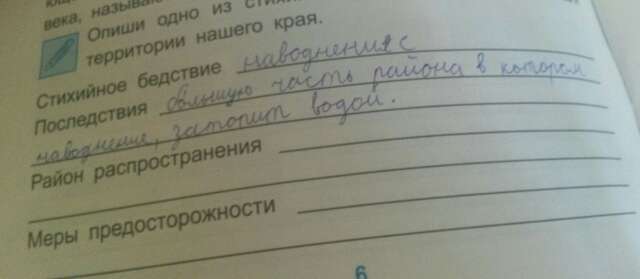 века, называю
Опиши одно из стихи
территории нашего края.
Стихийное бедствие наводнения с
Последствия большую часть района в котором
наводнение, затопит водой.
Район распространения
Меры предосторожности
6